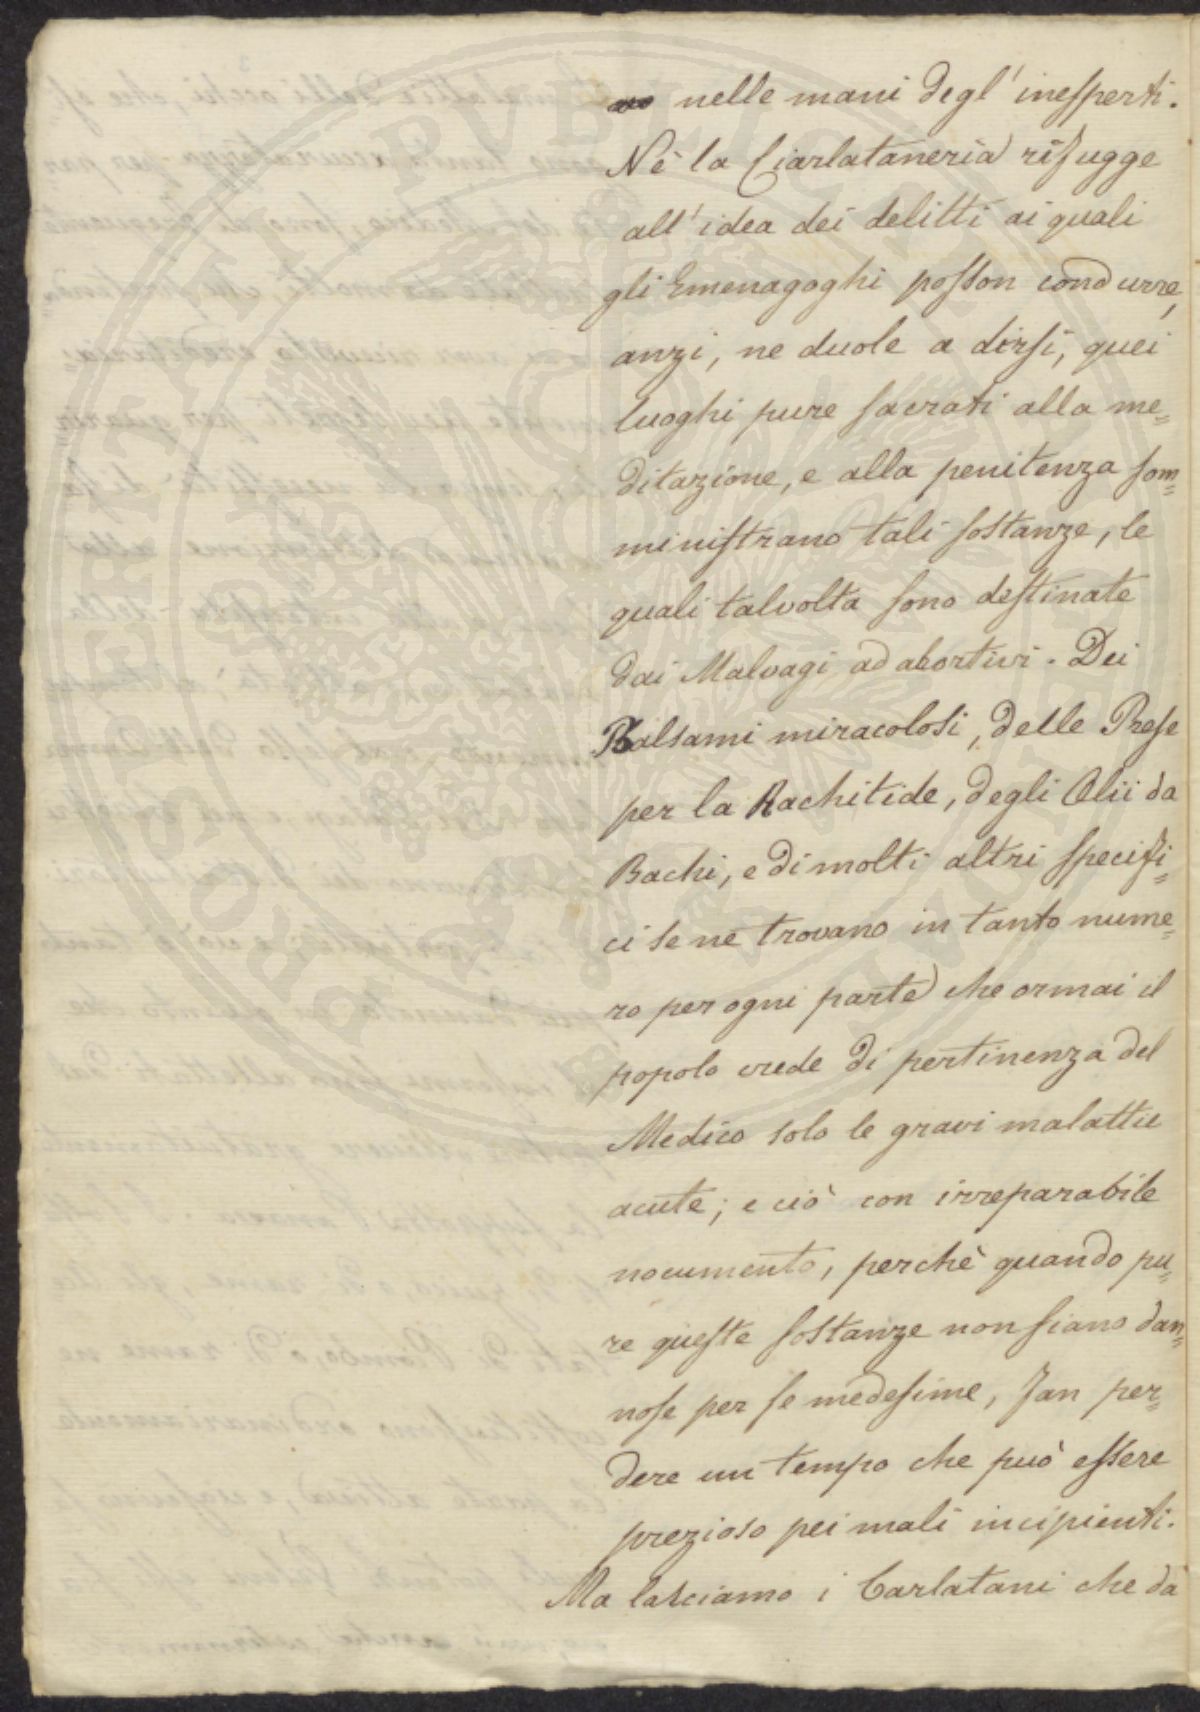 vo nelle mani degl' inesperti.
Nè la Ciarlataneria rifugge
all' idea dei delitti ai quali
gli Emenagoghi posson condurre,
anzi, ne duole a dirsi, quei
luoghi pure sacrati alla me=
ditazione, e alla penitenza som=
ministrano tali sostanze, le
quali talvolta sono destinate
dai Malvagi ad abortivi. Dei
Balsami miracolosi, delle Prese
per la Rachitide, degli Olii da
Bachi, e di molti altri specifi=
ci se ne trovano in tanto nume=
ro per ogni parte che ormai il
popolo crede di pertinenza del
Medico solo le gravi malattie
acute; e ciò con irreparabile
nocumento, perchè quando pu=
re queste sostanze non siano dan=
nose per se medesime, fan per=
dere un tempo che può essere
prezioso pei mali incipienti.
Ma lasciamo i Carlatani che da